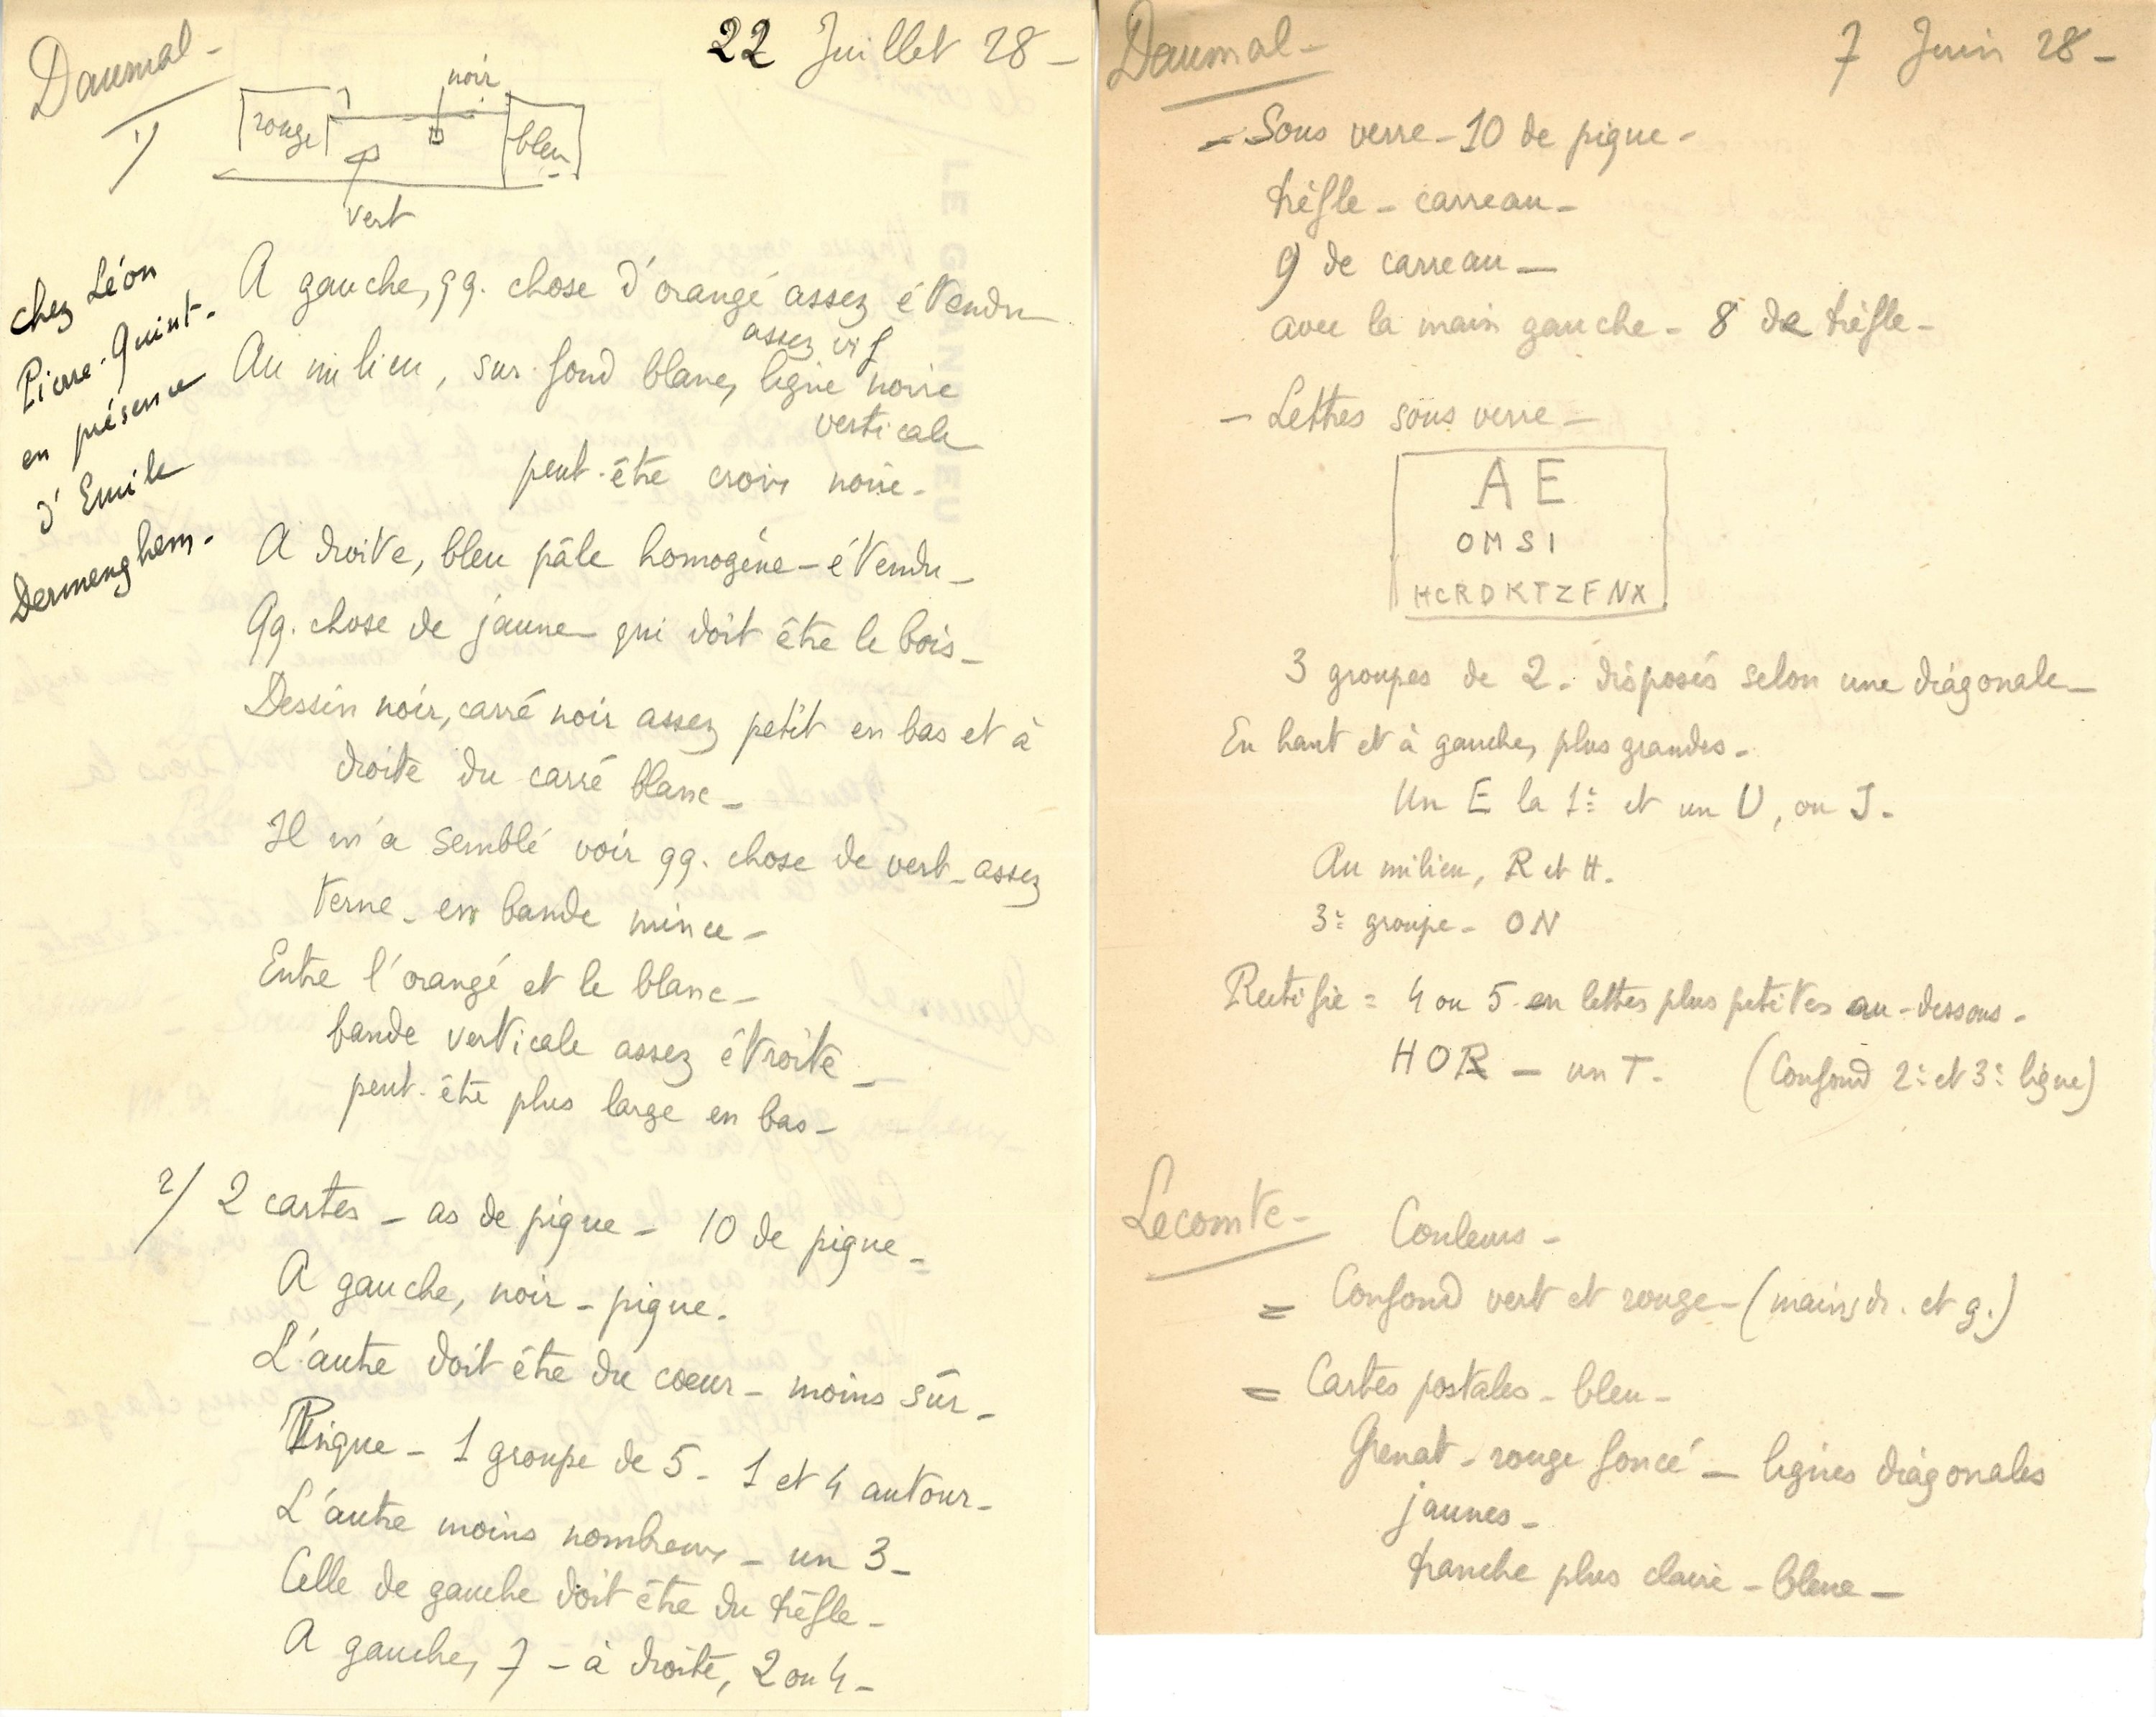 Daumal -
22 Juillet 28 -
1/
noir
rouge
bleu
vert
chez Léon
Pierre-Quint -
en présence
d'Emile
Dermenghem -
A gauche, qq. chose d'orangé assez étendu
assez vif
Au milieu, sur fond blanc, ligne noire
verticale
peut-être croix noire -
A droite, bleu pâle homogène - étendu -
Qq. chose de jaune qui doit être le bois -
Dessin noir, carré noir assez petit en bas et à
droite du carré blanc -
Il m'a semblé voir qq. chose de vert - assez
terne - en bande mince -
Entre l'orangé et le blanc -
bande verticale assez étroite -
peut-être plus large en bas -
2/ 2 cartes - as de pique - 10 de pique -
A gauche, noir - pique.
L'autre doit être du coeur - moins sûr -
Pique - 1 groupe de 5 - 1 et 4 autour -
L'autre moins nombreux - un 3 -
Celle de gauche doit être du trèfle -
A gauche, 7 - à droite, 2 ou 4 -
Daumal -
7 Juin 28 -
= Sous verre - 10 de pique -
trèfle - carreau -
9 de carreau -
avec la main gauche - 8 de trèfle -
- Lettres sous verre -
A E
O M S I
H C R D K T Z F N X
3 groupes de 2 - disposés selon une diagonale -
En haut et à gauche, plus grandes -
Un E la 1e et un U, ou J -
Au milieu, R et H.
3e groupe - ON
Rectifie = 4 ou 5 en lettres plus petites au-dessous -
HOR - un T - (Confond 2e et 3e ligne)
Lecomte -
Couleurs -
= Confond vert et rouge - (mains dr. et g.)
= Cartes postales - bleu -
Grenat - rouge foncé - lignes diagonales
jaunes -
tranche plus claire - bleue -